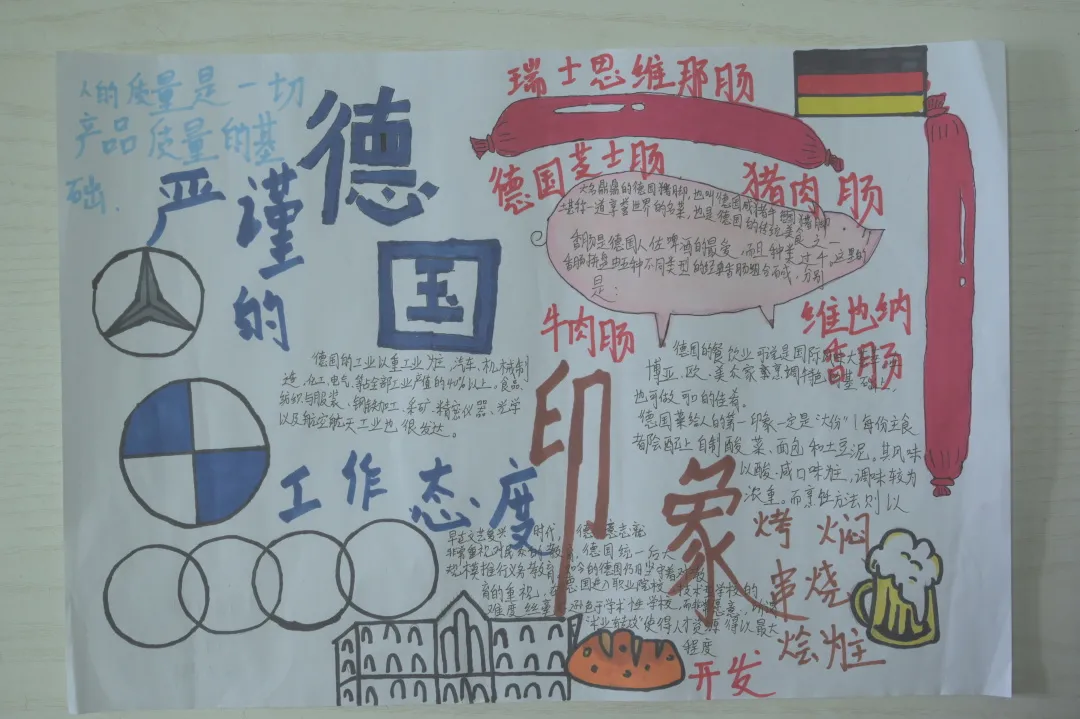 人的质量是一切
产品质量的基
础.
德
国
印
象
严谨
的
工作态度
德国的工业以重工业为主,汽车、机械制
造、化工、电气、等占全部工业产值的40%以上。食品、
纺织与服装、钢铁加工、采矿、精密仪器、光学
以及航空航天工业也很发达。
瑞士思维那肠
德国芝士肠
猪肉肠
大名鼎鼎的德国猪脚,也叫德国咸猪手
堪称一道享誉世界的名菜,也是德国的传统美食之一
香肠是德国人佐啤酒的最爱,而且种类过千。这里的
香肠拼盘由五种不同类型的经典香肠组合而成,分别
是:
牛肉肠
维也纳
香肠
德国的餐饮业可说是国际
博亚、欧、美众家烹调特色
也可做可口的佳肴。
德国菜给人的第一印象一定是"大份"!每份主食
都会配上自制酸菜、面包和土豆泥。其风味
以酸、咸口味为主,调味较为
浓重。而烹饪方法则以
烤 焖
串烧
烩为主
早在文艺复兴 时代,德
非常重视对民众的教育,德国统一后大
规模推行义务教育,如今的德国仍旧坚守着对教
育的重视,在德国进入职业院校、技术型学校的
难度丝毫不逊色于学术性学校
使得人才资源得以最大
程度
开发